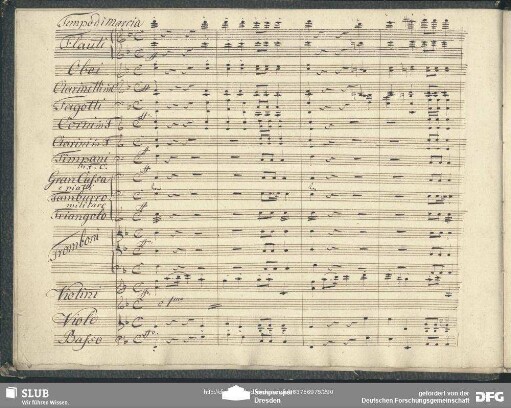 Tempo di Marcia
Flauti
Oboi
Clarinetti in
Fagotti
Corni in
Clarini in
Timpani
in F. C.
Gran Cassa
e piatti
Tamburro
militare
Triangolo
Tromboni
Violini
Viole
Basso
SLUB
Wir führen Wissen.
Dresden
gefördert von der
Deutschen Forschungsgemeinschaft
DFG